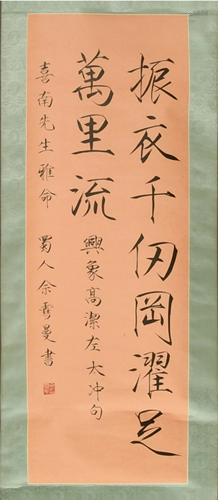 振衣千仞岡濯足
萬里流
興象高潔左太冲句
喜南先生雅命
蜀人余雪曼書